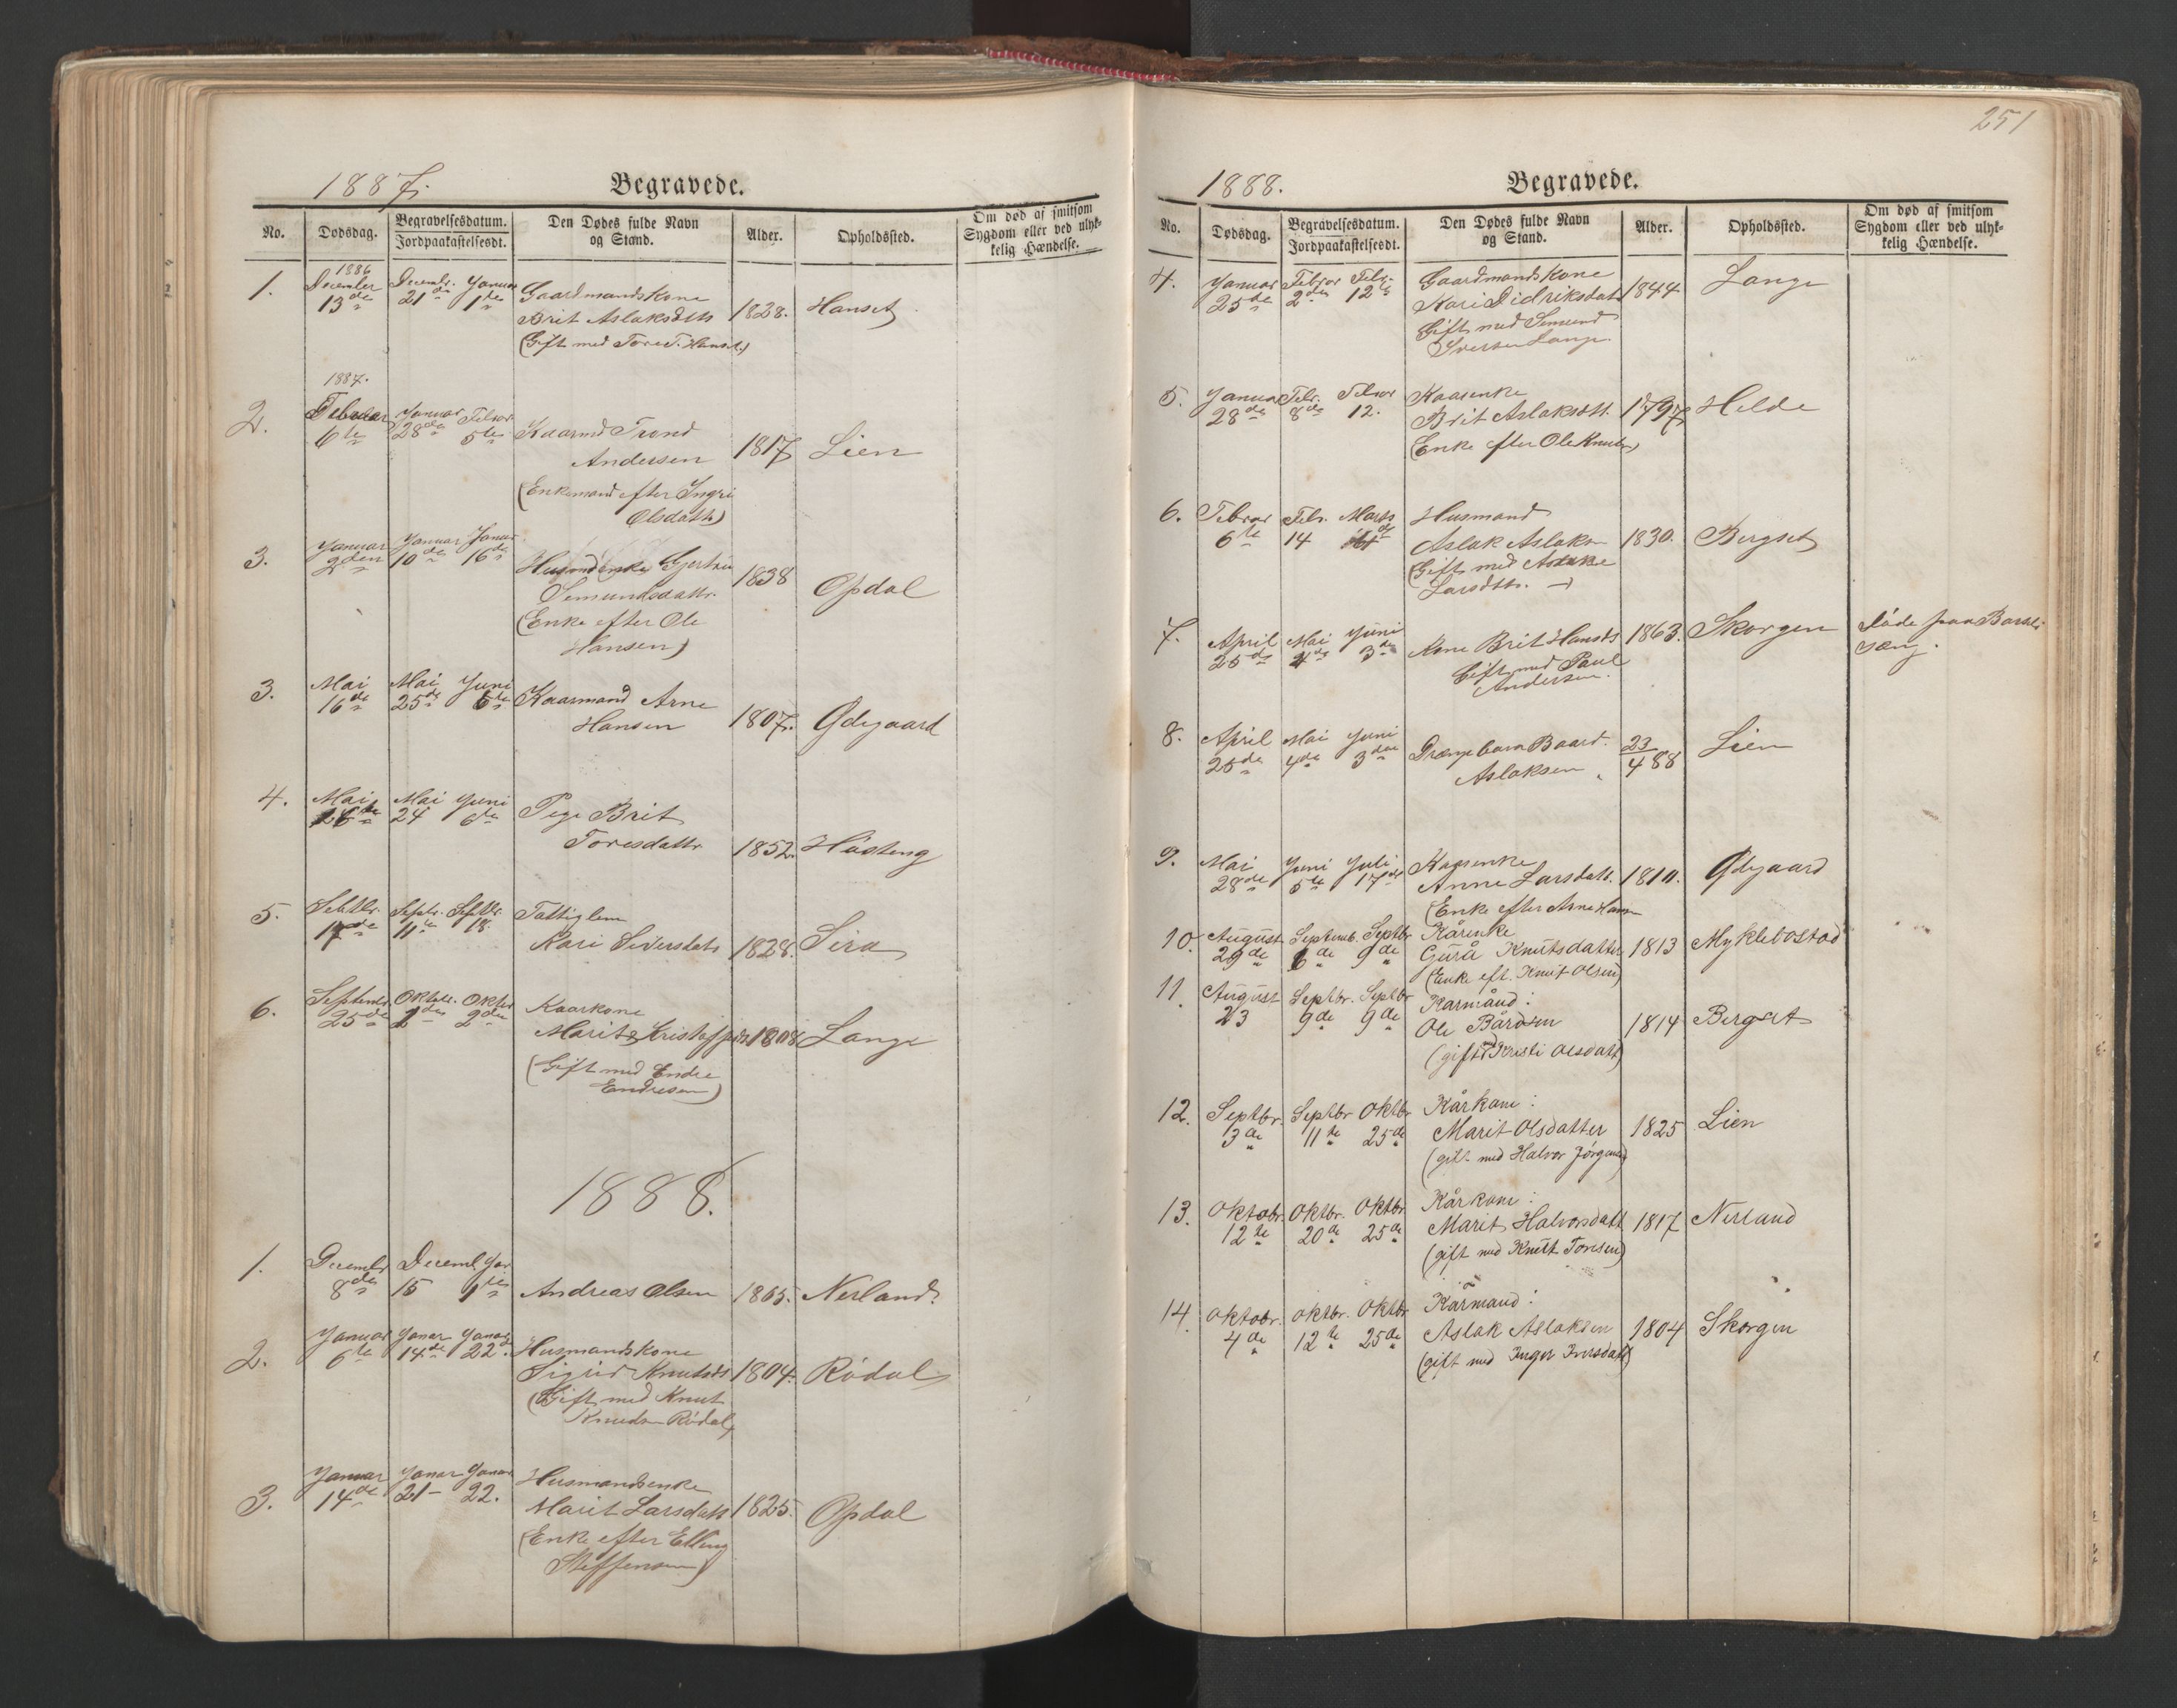 1887.
Begravede.
No. Dødsdag. Begravelsesdatum. Jordpaakastelsesdt. Den Dødes fulde Navn og Stand. Alder. Opholdssted. Om død af smitsom Sygdom eller ved ulykkelig Hændelse.
1. 1886 December 13de Decembr. 21de Januar 1de Gaardmandskone
Brit Aslaksdtts 1828. Hanset
(Gift med Tore T. Hanset)
1887.
2. Februar 6te Januar 28de Febror 5te Kaarmd Trond
Andersen 1817 Lien
(Enkemand efter Ingri
Olsdattr)
3. Januar 2den Januar 10de Januar 16de Husmdenke Gjertru
Semundsdattr. 1838 Opdal
(Enke efter Ole
Hansen)
3. Mai 16de Mai 25de Juni 6te Kaarmand Arne
Hansen 1807. Ødegaard
4. Mai 16de Mai 24 Juni 6te Pige Brit
Toresdattr 1852. Hästeng
5. Septbr. 17de Septr. 11te Septbr. 18 Fattiglem
Kari Siversdatr 1828. Sira
6. Septembr. 25de Oktobr. 2den Oktbr 2den Kaarkone
Marit Kristoffersd. 1808 Lange
(Gift med Endre
Endresen)
1888.
1. Decembr 8de Deceml. 15 Jar. 1te Andreas Olsen 1865. Nerland.
2. Januar 6te Janar 14de Janar 22. Husmandskone
Sigrid Knutsdtr 1804. Rödal
(Gift med Knut
Knudsen Rödal)
3. Januar 14de Janar 21 Janar 22. Husmandsenke
Marit Larsdatr 1825. Opdal
(Enke efter Elling
Steffensen)
251
1888.
Begravede.
No. Dødsdag. Begravelsesdatum. Jordpaakastelsesdt. Den Dødes fulde Navn og Stand. Alder. Opholdssted. Om død af smitsom Sygdom eller ved ulykkelig Hændelse.
4. Januar 25de Febror 2den Febr. 12te Gaardmandskone
Kari Didriksdatr 1844 Lange
Gift med Semund
Iversen Lange
5. Januar 28de Febr. 8de Febror 12. Kaarenke
Brit Aslaksdtt. 1797 Helde
(Enke efter Ole Knutsn)
6. Febror 6te Febr. 14 Marts Husmand
Aslak Aslaksn 1830. Bergset
(Gift med
Larsdttr.)
7. April 25de Mai 4de Juni 3de Kone Brit Hansdt 1863. Skorgen Døde paa Barselsæng.
Gift med Paul
Andersen.
8. April 25de Mai 4de Juni 3die Drængebarn Baard. 23/4 88 Lien
Aslaksen
9. Mai 28de Juni 5te Juli 17de Kaarenke
Anne Larsdatt. 1810. Ødegaard
(Enke efter Arne Hansn
10. August 29de Septemb. 6de Septbr 9de Kårenke
Gurå Knutsdatter 1813 Myklebostad
(Enke eft. Knut Olsen)
11. August 23 Septbr. 9de Septbr 9de Karmånd:
Ole Bårdsen 1814 Bergset
(gift med Kristi Olsdatt)
12. Septbr. 3de Septbr 11te Oktbr 25de Kårkone:
Marit Olsdatter 1825 Lien
(gift med Halvor Jörgens)
13. Oktobr. 12te Oktbr. 20de Oktbr 25de Kårkone:
Marit Halvorsdatt 1817 Nerland
(gift med Knut Toresen)
14. Oktobr. 4de Oktbr. 12te Oktbr 25de Kårmand:
Aslak Aslaksen 1804 Skorgen
(gift med Inger Iversdatt)